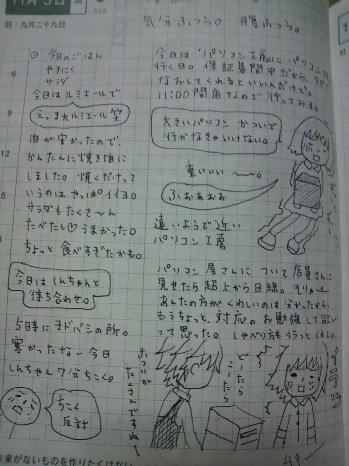 11月5日
旧:九月二十九日
309
気分ふつう。 腹ふつう。
8
12
6
今日のごはん
やきにく
サラダ
今日はルミエールで
肉が安かったので、
かんたんに焼き肉に
しました。焼くだけって
いうのはやっぱイイヨ。
サラダもたくさ～ん
たべたし♡うまかった。
ちょっと食べすぎたかも。
今日はしんちゃんと
待ち合わせ。
5時にヨドバシの所。
寒かったなー今日
しんちゃん7分ちこく。
ちこく
反対
今日は"パソコン工房にパソコン
行く日。保証期間中だから、
なおしてくれるといいんだけど。
11:00開店なので待ってみる。
大きいパソコンかついで
行かなきゃいけない。
重いいい～～。
ふおぉぉぉ
遠いようで近い
パソコン工房
パソコン屋さんについて店員さんに
見せたら超上から目線。そりゃー
あんたの方がくわしいのは分かったから、
もうちょっと、対応のお勉強して欲しい
って思った。しゃべり方もイラっとイライラ。
ムキー
未来がないものを作りたくはない